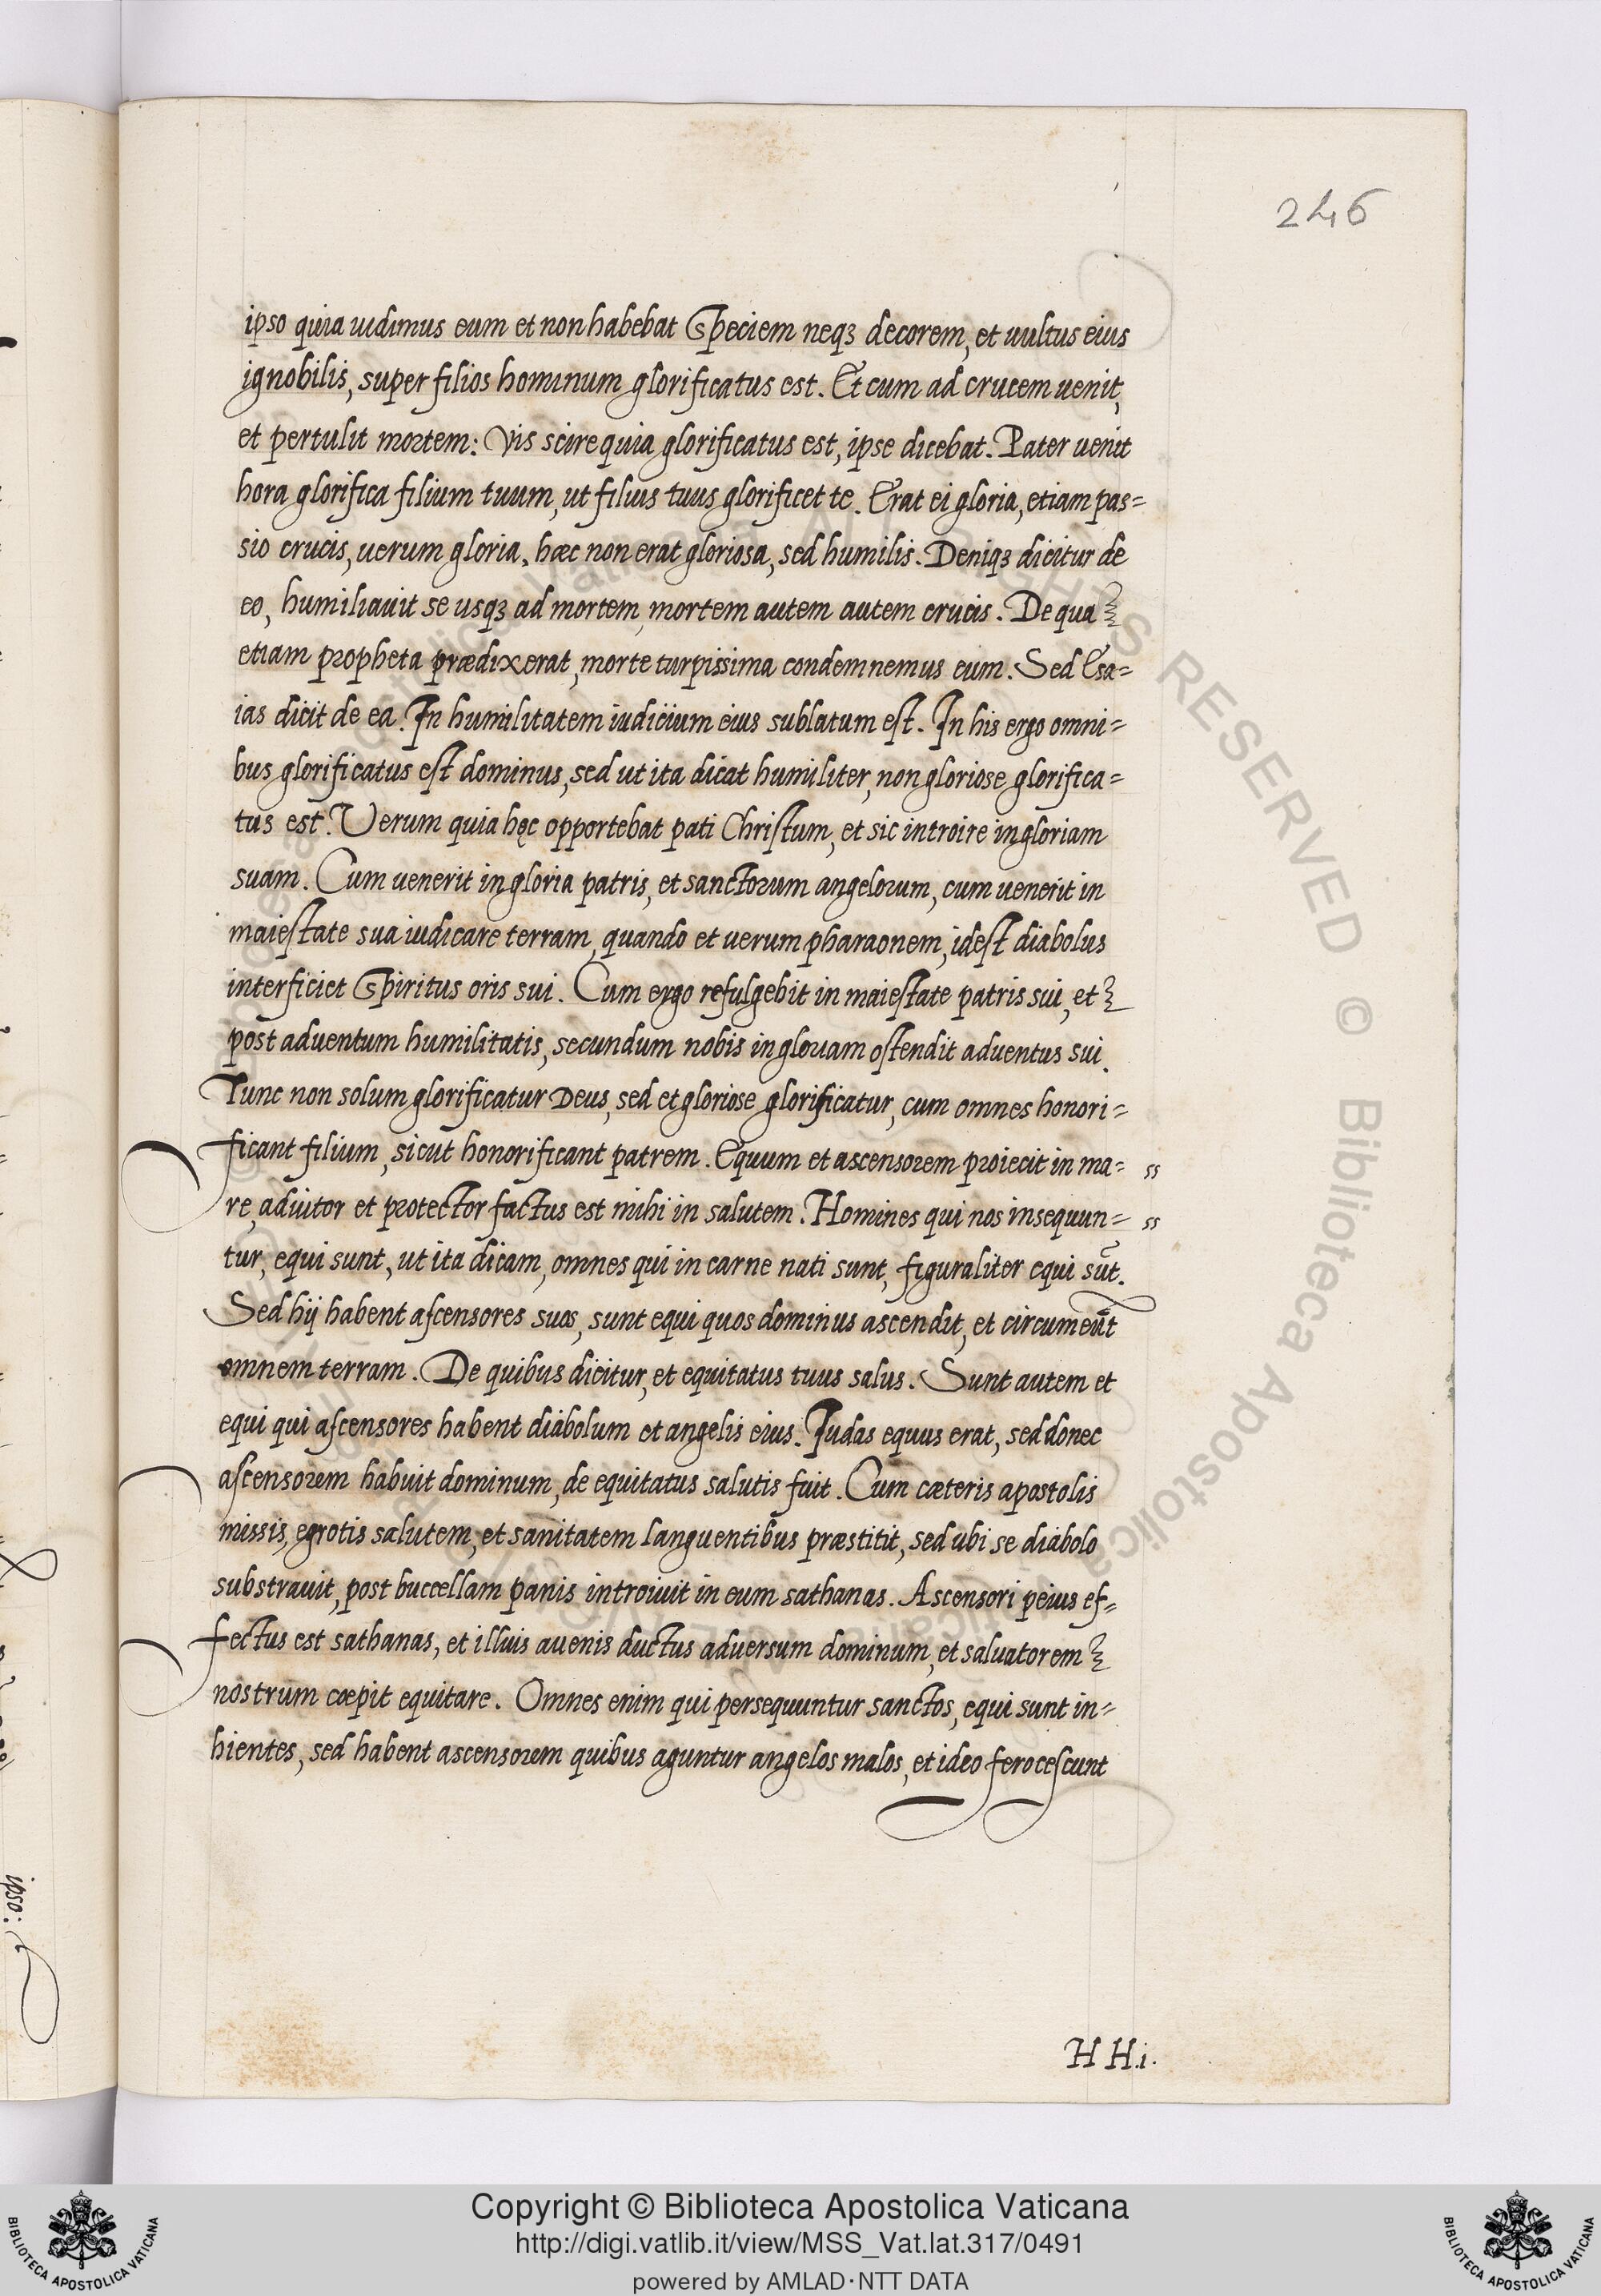 246
ipso quia uidimus eum et non habebat speciem neqꝫ decorem, et uultus eius
ignobilis, super filios hominum glorificatus est. Et cum ad crucem uenit,
et pertulit mortem: Vis scire quia glorificatus est, ipse dicebat. Pater uenit
hora glorifica filium tuum, ut filius tuus glorificet te. Erat ei gloria, etiam pas=
sio crucis, uerum gloria, hæc non erat gloriosa, sed humilis. Deniqꝫ dicitur de
eo, humiliauit se usqꝫ ad mortem, mortem autem autem crucis. De qua
etiam propheta prædixerat, morte turpissima condemnemus eum. Sed Esa=
ias dicit de ea. In humilitatem iudicium eius sublatum est. In his ergo omni=
bus glorificatus est dominus, sed ut ita dicat humiliter, non gloriose glorifica=
tus est. Verum quia hęc opportebat pati Christum, et sic introire in gloriam
suam. Cum uenerit in gloria patris, et sanctorum angelorum, cum uenerit in
maiestate sua iudicare terram, quando et uerum pharaonem, idest diabolus
interficiet Spiritus oris sui. Cum ergo refulgebit in maiestate patris sui, et
post aduentum humilitatis, secundum nobis in gloriam ostendit aduentus sui.
Tunc non solum glorificatur Deus, sed et gloriose glorificatur, cum omnes honori=
ficant filium, sicut honorificant patrem. Equum et ascensorem proiecit in ma= ss
re, adiutor et protector factus est mihi in salutem. Homines qui nos insequun= ss
tur, equi sunt, ut ita dicam, omnes qui in carne nati sunt, figuraliter equi sūt.
Sed hij habent ascensores suos, sunt equi quos dominus ascendit, et circumeūt
omnem terram. De quibus dicitur, et equitatus tuus salus. Sunt autem et
equi qui ascensores habent diabolum et angelis eius. Iudas equus erat, sed donec
ascensorem habuit dominum, de equitatus salutis fuit. Cum cæteris apostolis
missis, egrotis salutem, et sanitatem languentibus præstitit, sed ubi se diabolo
substrauit, post buccellam panis introiuit in eum sathanas. Ascensori peius ef=
fectus est sathanas, et illius auenis ductus aduersum dominum, et saluatorem
nostrum cœpit equitare. Omnes enim qui persequuntur sanctos, equi sunt in=
hientes, sed habent ascensorem quibus aguntur angelos malos, et ideo ferocescunt
ipso:
H H.i.
Copyright © Biblioteca Apostolica Vaticana
http://digi.vatlib.it/view/MSS_Vat.lat.317/0491
powered by AMLAD·NTT DATA
BIBLIOTECA APOSTOLICA VATICANA
BIBLIOTECA APOSTOLICA VATICANA